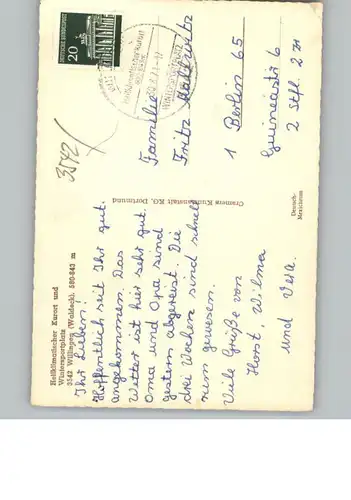 Heilklimatischer Kurort und
Wintersportplatz
3542 Willingen (Waldeck), 580-843 m
Ihr Lieben!
Hoffentlich seit Ihr gut
angekommen. Das
Wetter ist hier sehr gut.
Oma und Opa sind
gestern abgereist. Die
drei Wochen sind schnell
rum gewesen.
Viele Grüße von
Horst, Wilma
und Vera.
Cramers Kunstanstalt KG, Dortmund
3542
DEUTSCHE BUNDESPOST
20
heilklimatischer Kurort
Wintersportplatz
Familie
Fritz
1 Berlin 65
Guineastr 6
2 Stfl.